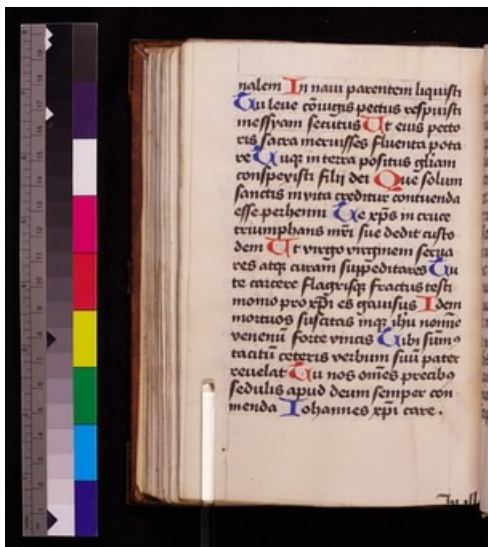 nalem In naui parentem liquisti
Tu leue cōiugis pectus respuisti
messyam secutus Ut eius pecto
ris sacra meruisses fluenta pota
re Tuqꝫ in terra positus gl̄iam
conspexisti filij dei Que solum
sanctis in vita creditur contuenda
esse perhenni Te xp̄s in cruce
triumphans mr̄i sue dedit custo
dem Ut virgo virginem serua
res atqꝫ curam suppeditares Tu
te carcere flagrisqꝫ fractus testi
monio pro xp̄i es gauisus Idem
mortuos suscitas inqꝫ ih̄u nomine
venenū forte vincis Tibi sūmꝰ
tacitū ceteris verbum suū pater
reuelat Tu nos om̄es precibꝰ
sedulis apud deum semper con
menda Iohannes xp̄i care .